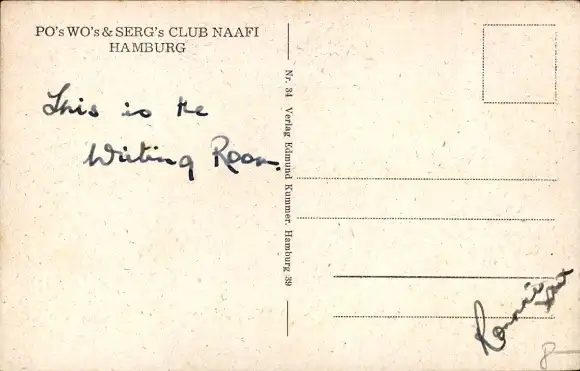 PO's WO's & SERG's CLUB NAAFI
HAMBURG
This is the
Writing Room.
Nr. 34 Verlag Edmund Kummer, Hamburg 39
Ronnie
8—